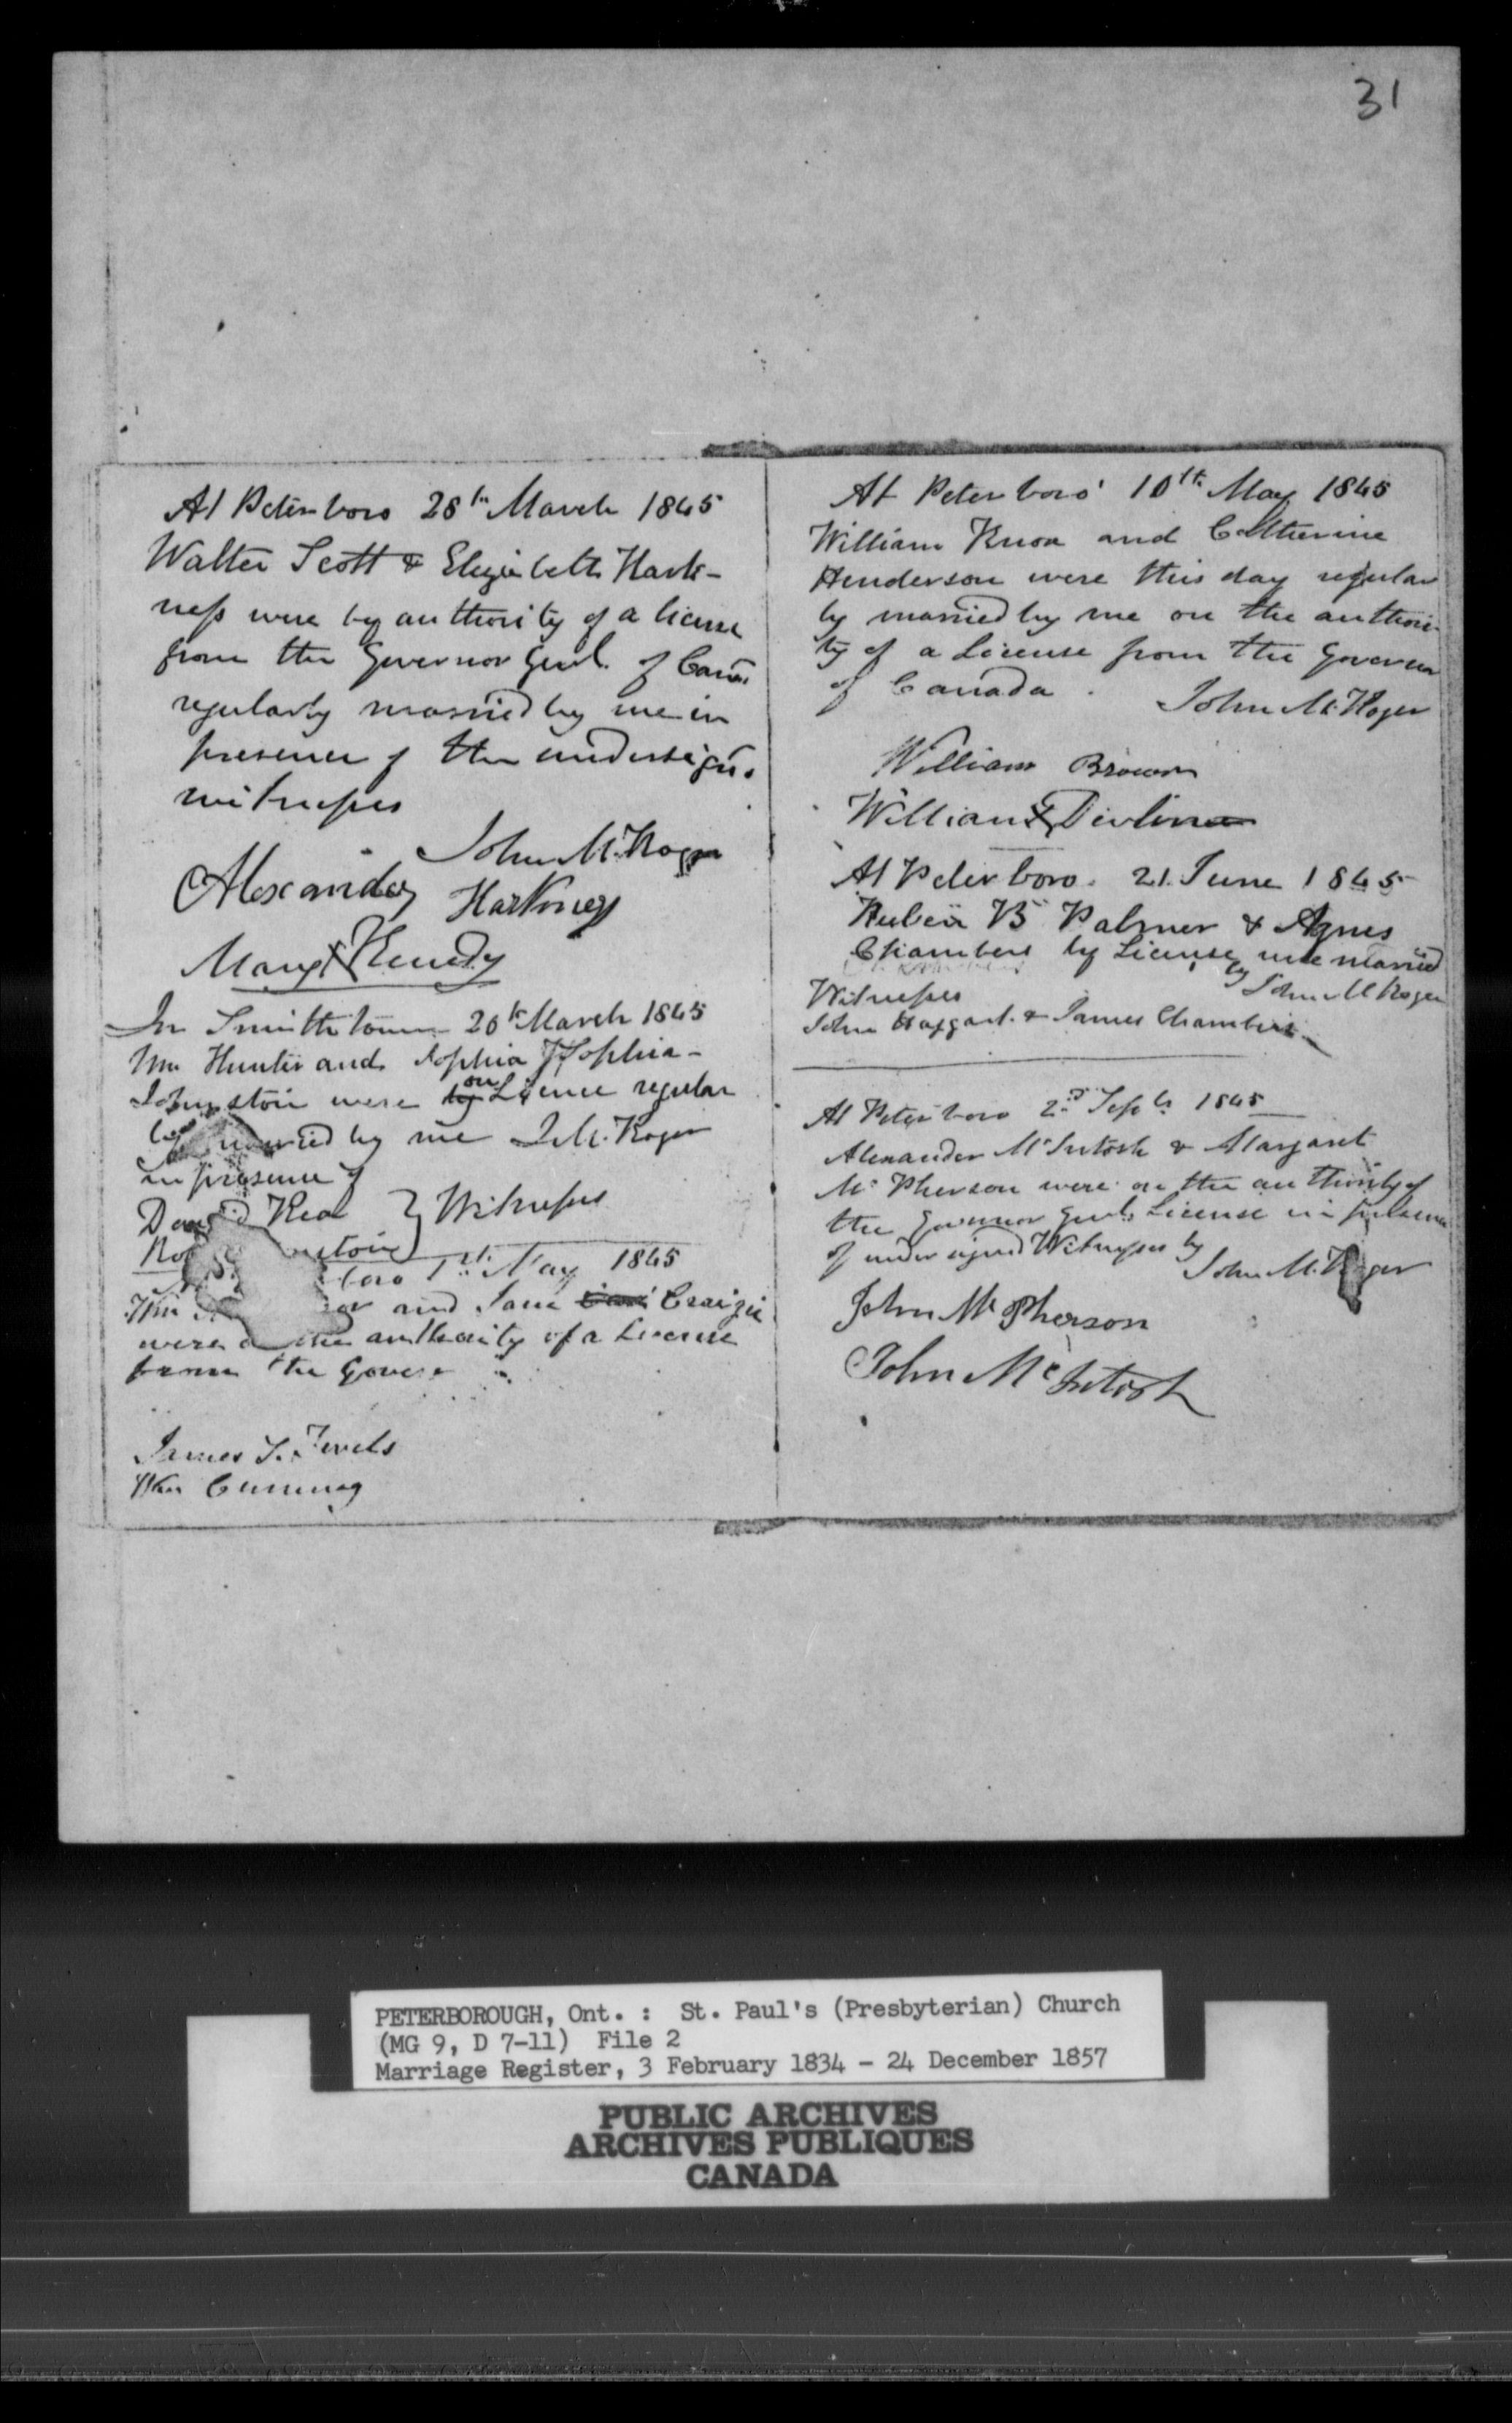 31
At Peterboro 28th March 1845
Walter Scott & Elizabeth Hark-
ness were by authority of a license
from the Governor Genl. of Cana.
regularly married by me in
presence of the undersign.
witnesses
John M. Roger
Alexander Harkness
Mary X Kennedy
In Smithtown 20th March 1845
Wm Hunter and Sophia Sophia-
Johnston were by on Licence regular
ly married by me J. M. Roger
in presence of
David Rea } Witnesses
Ro nstone
boro 1st May 1845
Wm and Jane Craigie
were the authority of a License
from the Gover
James T.
Wm Cumming
At Peterboro' 10th May 1845
William Knox and Catherine
Henderson were this day regular
ly married by me on the authori-
ty of a License from the Governor
of Canada. John M. Roger
William Brown
William X Devlin
At Peterboro. 21. June 1845
Ruben B Palmer & Agnes
Chambers by License were married
by John M Roger
Witnesses
John Haggart. & James Chambers
At Peterboro 2nd Septr 1845
Alexander McIntosh & Margaret
McPherson were on the authority of
the Governor Genls License in presence
of undersigned Witnesses by
John M. Roger
John McPherson
John McIntosh
PETERBOROUGH, Ont. : St. Paul's (Presbyterian) Church
(MG 9, D 7-11) File 2
Marriage Register, 3 February 1834 - 24 December 1857
PUBLIC ARCHIVES
ARCHIVES PUBLIQUES
CANADA